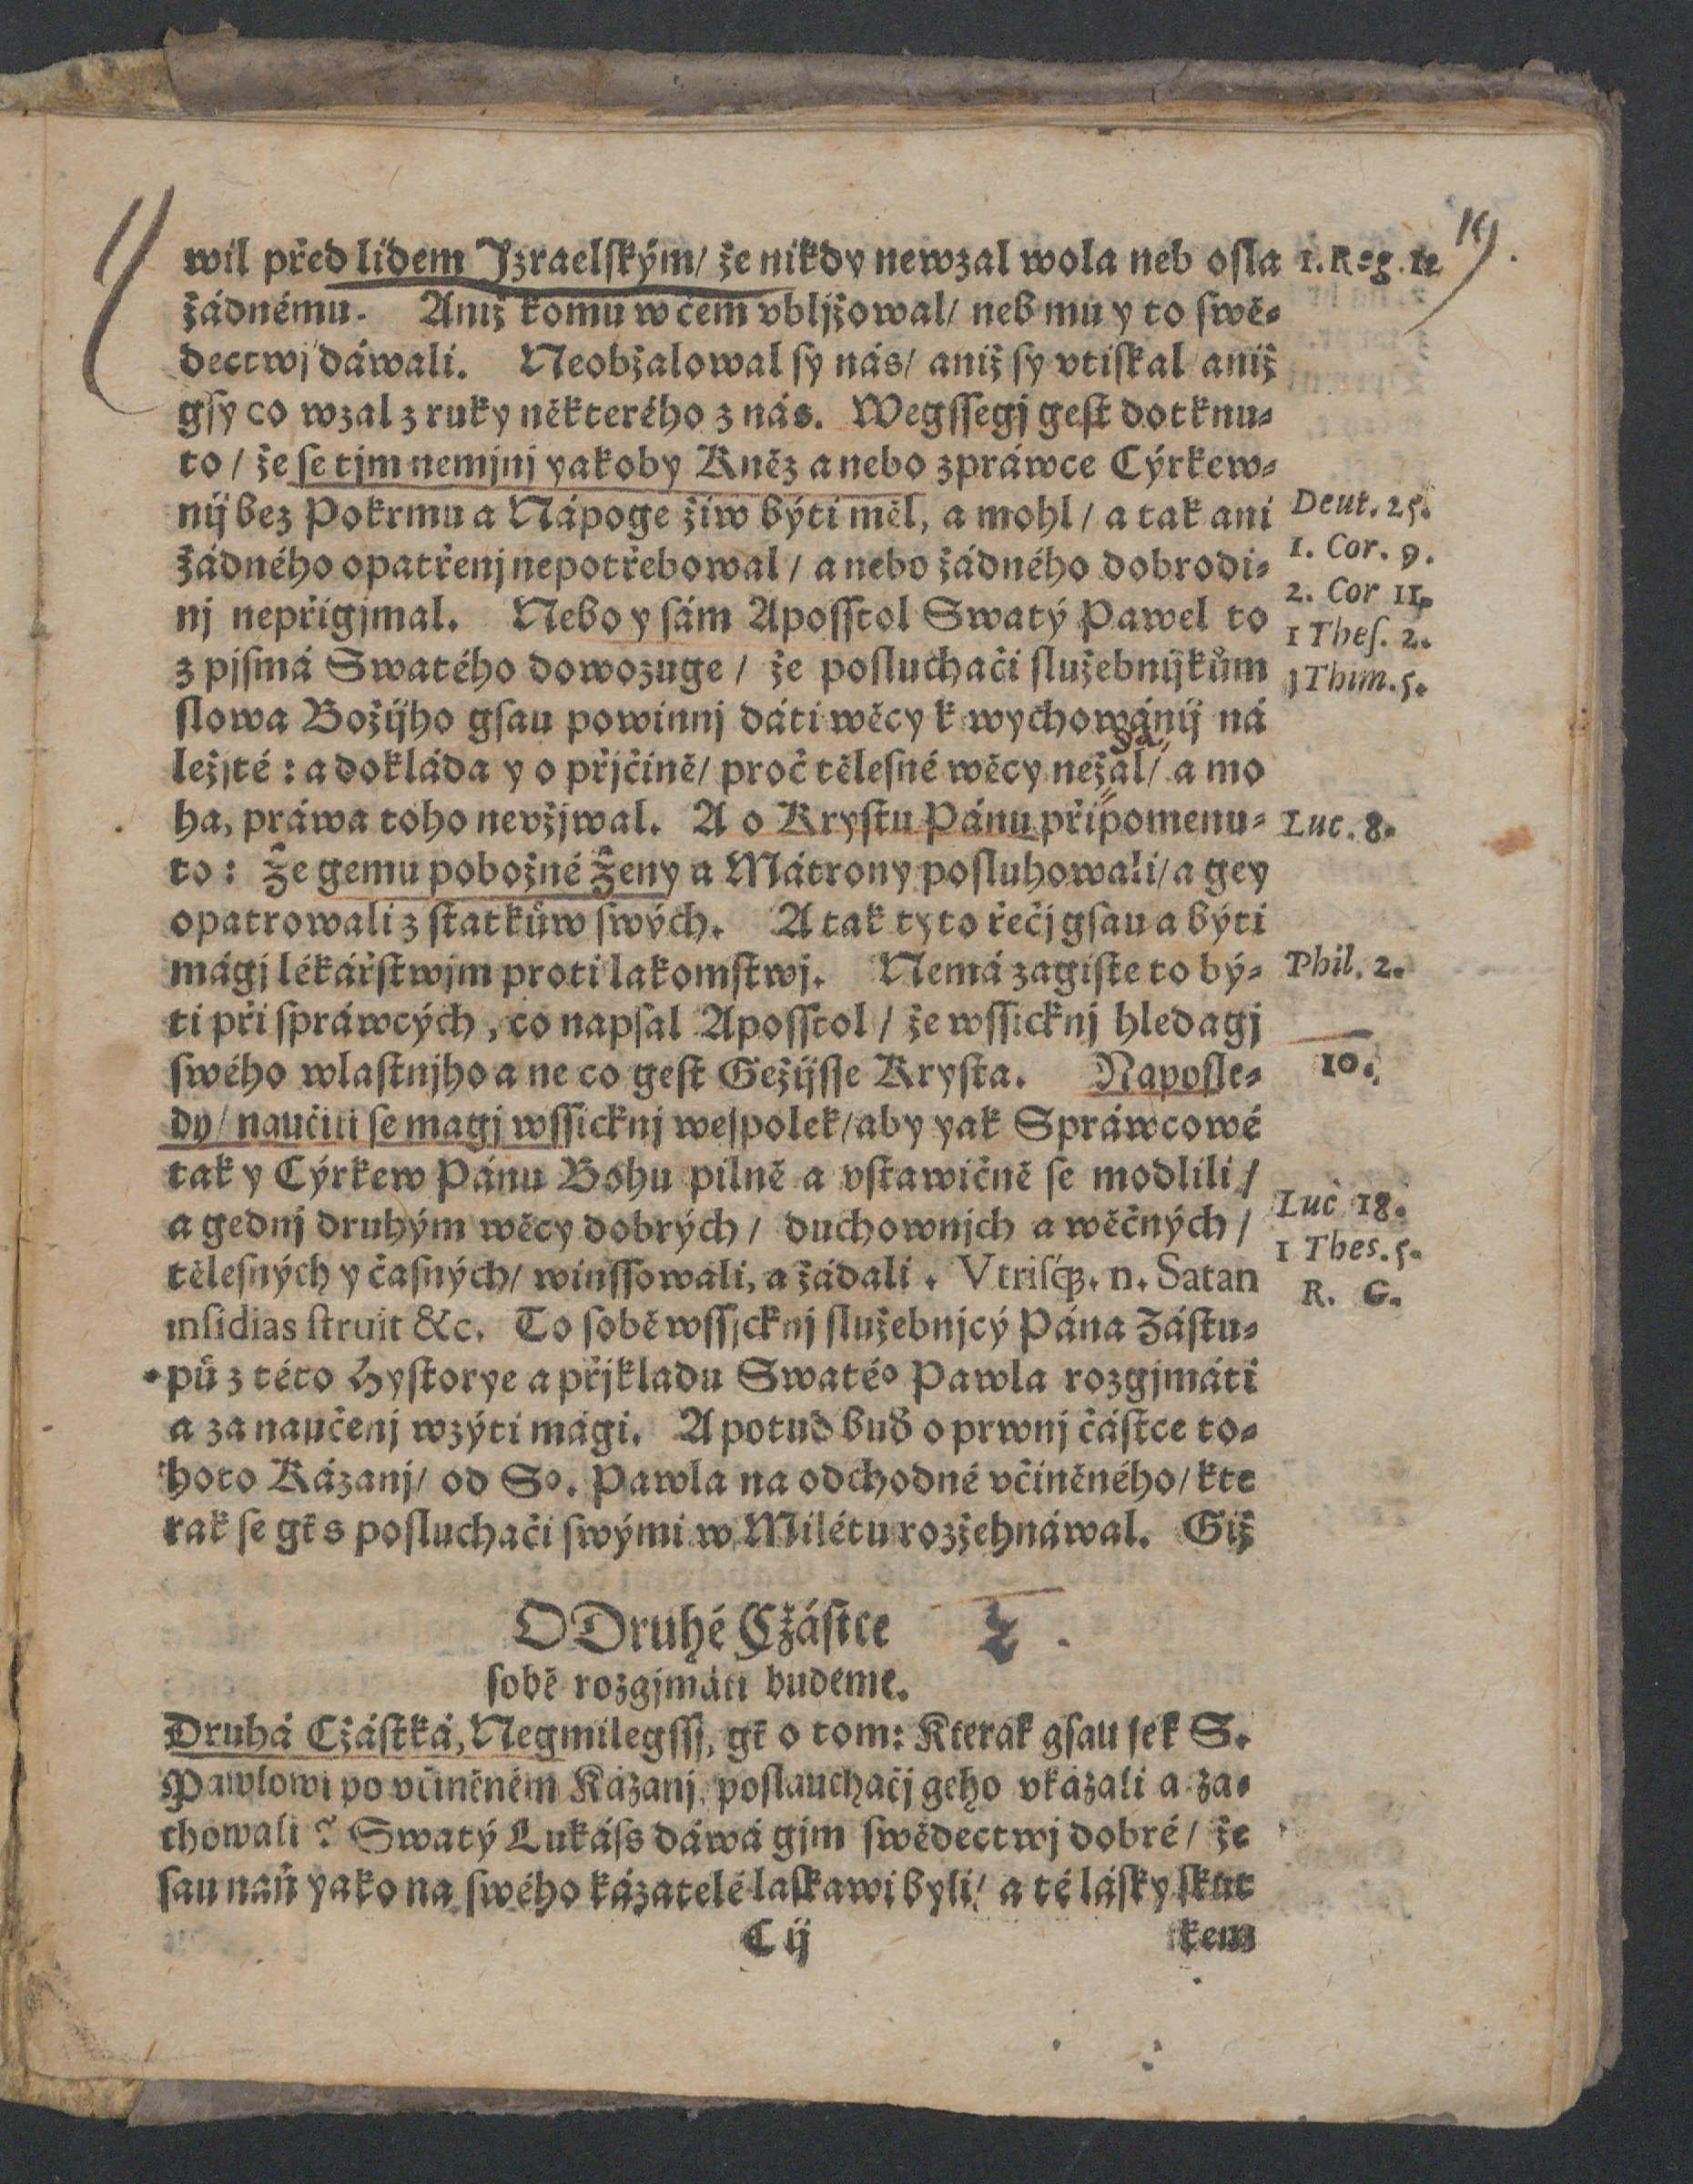 19.
wil před lidem Jzraelſkým/ že nikdy newzal wola neb oſla
1. Reg. 12
žádnému. Aniž komu w čem vbljžowal/ neb mu y to ſwě⸗
dectwj dáwali. Neobžalowal ſy nás/ aniž ſy vtiſkal aniž
gſy co wzal z ruky některého z nás. Wegſſegj geſt dotknu⸗
to / že ſe tjm nemjnj yakoby Kněz anebo zpráwce Cýrkew⸗
nij bez Pokrmu a Nápoge žiw býti měl, a mohl / a tak ani
Deut. 25.
žádného opatřenj nepotřebowal / anebo žádného dobrodi⸗
1. Cor. 9.
nj nepřigjmal. Nebo y ſám Apoſſtol Swatý Pawel to
2. Cor 11.
1 Theſ. 2.
z pjſmá Swatého dowozuge / že poſluchači ſlužebnijkům
1 Thim. 5.
ſlowa Božijho gſau powinnj dáti wěcy k wychowánij ná
ležjté : a dokláda y o přjčině/ proč tělesné wěcy nežal/ a mo
da
ha, práwa toho nevžjwal. A o Kryſtu Pánu připomenu⸗
Luc. 8.
to : Že gemu pobožné Ženy a Mátrony poſluhowali/ a gey
opatrowali z ſtatkůw ſwých. A tak tyto řečj gſau a býti
mágj lékářſtwjm proti lakomſtwj. Nemá zagiſte to bý⸗
Phil. 2.
ti při ſpráwcých, co napſal Apoſſtol / že wſſicknj hledagj
ſwého wlaſtnjho a ne co geſt Gežijſſe Kryſta. Napoſle⸗
10.
dy/ naučiti ſe magj wſſicknj weſpolek/ aby yak Spráwcowé
tak y Cýrkew Pánu Bohu pilně a vſtawičně ſe modlili /
a gednj druhým wěcy dobrých / duchownjch a wěčných /
Luc 18.
tělesných y časných/ winſſowali, a žádali. Vtriſq́ꝫ. n. Satan
1 Thes. 5.
R. G.
inſidias ſtruit &c. To ſobě wſſjcknj ſlužebnjcý Pána Záſtu⸗
pů z této Hyſtorye a přjkladu Swatéᵒ Pawla rozgjmáti
a za naučenj wzýti mági. A potud buď o prwnj čáſtce to⸗
hoto Kázanj/ od Sᵒ. Pawla na odchodné včiněného/ kte
rak ſe gt̄ s poſluchači ſwými w Milétu rozžehnáwal. Giž
O Druhé Cžáſtce
2.
ſobě rozgjmáti budeme.
Druhá Cžáſtká, Negmilegſſj, gt̄ o tom: Kterak gſau ſek S.
Pawlowi po včiněném Kázanj, poſlauchačj geho vkázali a za⸗
chowali? Swatý Lukáſs dáwá gim ſwědectwj dobré / že
ſau naň yako na ſwého kázatelé laſkawi byli/ a té láſky ſkut
C ij
kem